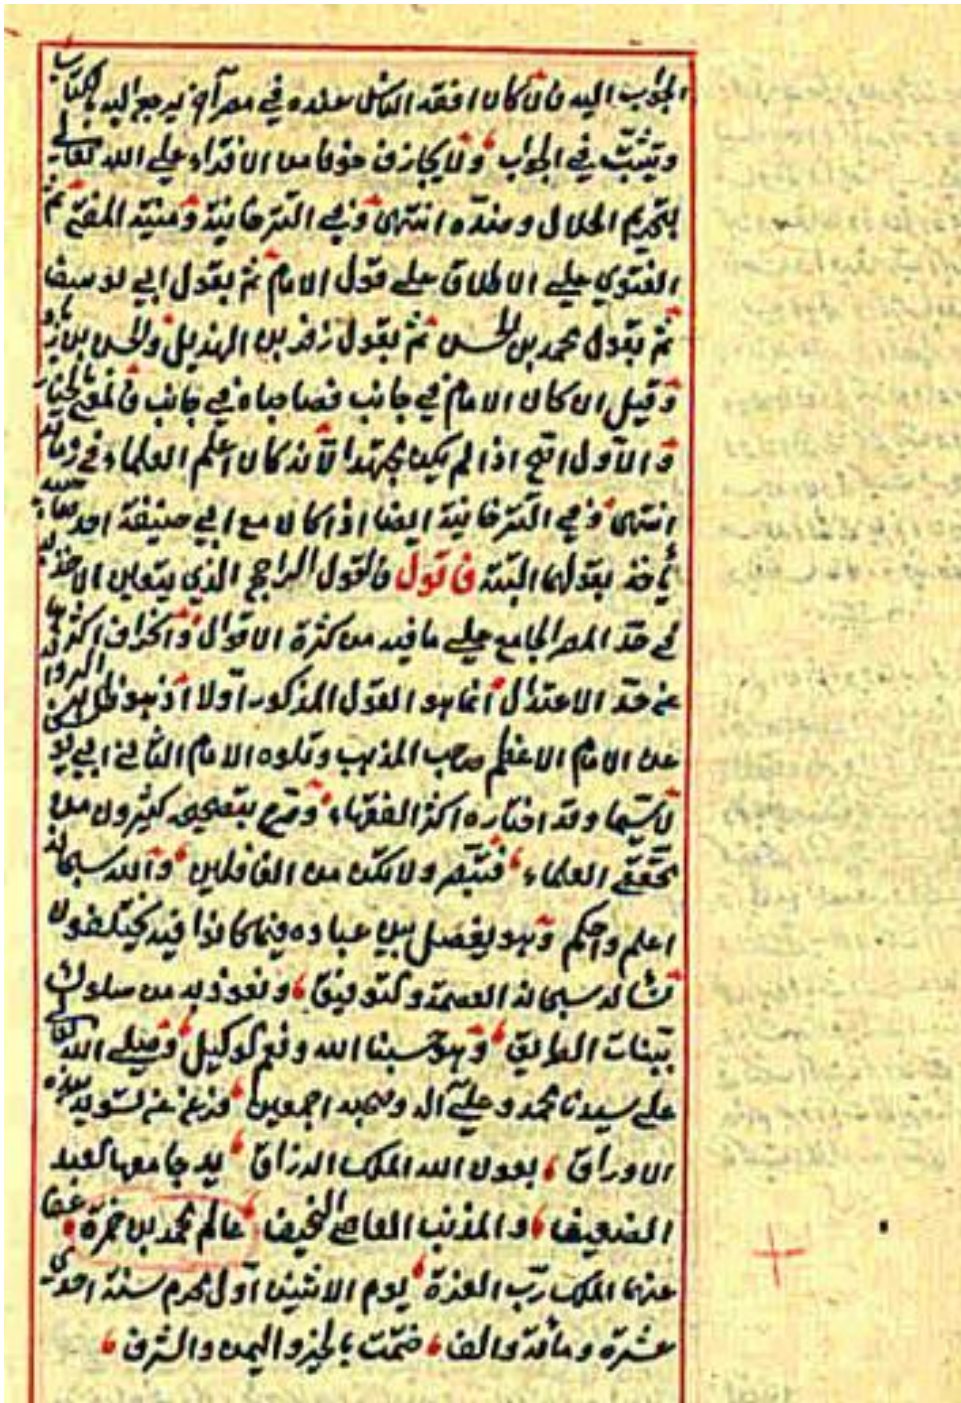 الجواب اليه فان كان افقه الناس عنده في مصر آخر يرجع اليه بالكتاب
ويتثبت في الجواب ولا يجازف خوفا من الافتراء على الله تعالى
بتحريم الحلال وضده انتهى وفي التترخانية ومنية المفتي ثم
الفتوى على الاطلاق على قول الامام ثم بقول ابي يوسف
ثم بقول محمد بن الحسن ثم بقول زفر بن الهذيل والحسن بن زياد
وقيل ان كان الامام في جانب فصاحباه في جانب فالمفتي بالخيار
والاول اصح اذا لم يكن مجتهدا لانه كان اعلم العلماء في زمانه
انتهى وفي التترخانية ايضا اذا كان مع ابي حنيفة احد صاحبيه
يأخذ بقولهما البتة فاقول فالقول الراجح الذي يتعين الاخذ به
في حد المصر الجامع على ما فيه من كثرة الاقوال وانحراف اكثرها
عن حد الاعتدال انما هو القول المذكور اولا اذ هو ظاهر الرواية
عن الامام الاعظم صاحب المذهب وتلوه الامام الثاني ابي يوسف
لاسيما وقد اختاره اكثر الفقهاء وصرح بتصحيحه كثيرون من
محققي العلماء فتبصر ولا تكن من الغافلين والله سبحانه
اعلم واحكم وهو يفصل بين عباده فيما كانوا فيه يختلفون
نسأله سبحانه العصمة والتوفيق ونعوذ به من سلوك
بنيات الطريق وهو حسبنا الله ونعم الوكيل وصلى الله تعالى
على سيدنا محمد وعلى آله وصحبه اجمعين فرغ عن تسويد هذه
الاوراق بعون الله الملك الرزاق يد جامعها العبد
الضعيف والمذنب العاصي النحيف عالم محمد بن حمزة عفا
عنهما الملك رب العزة يوم الاثنين اول محرم سنة احدى
عشرة ومائة والف ختمت بالخير واليمن والشرف